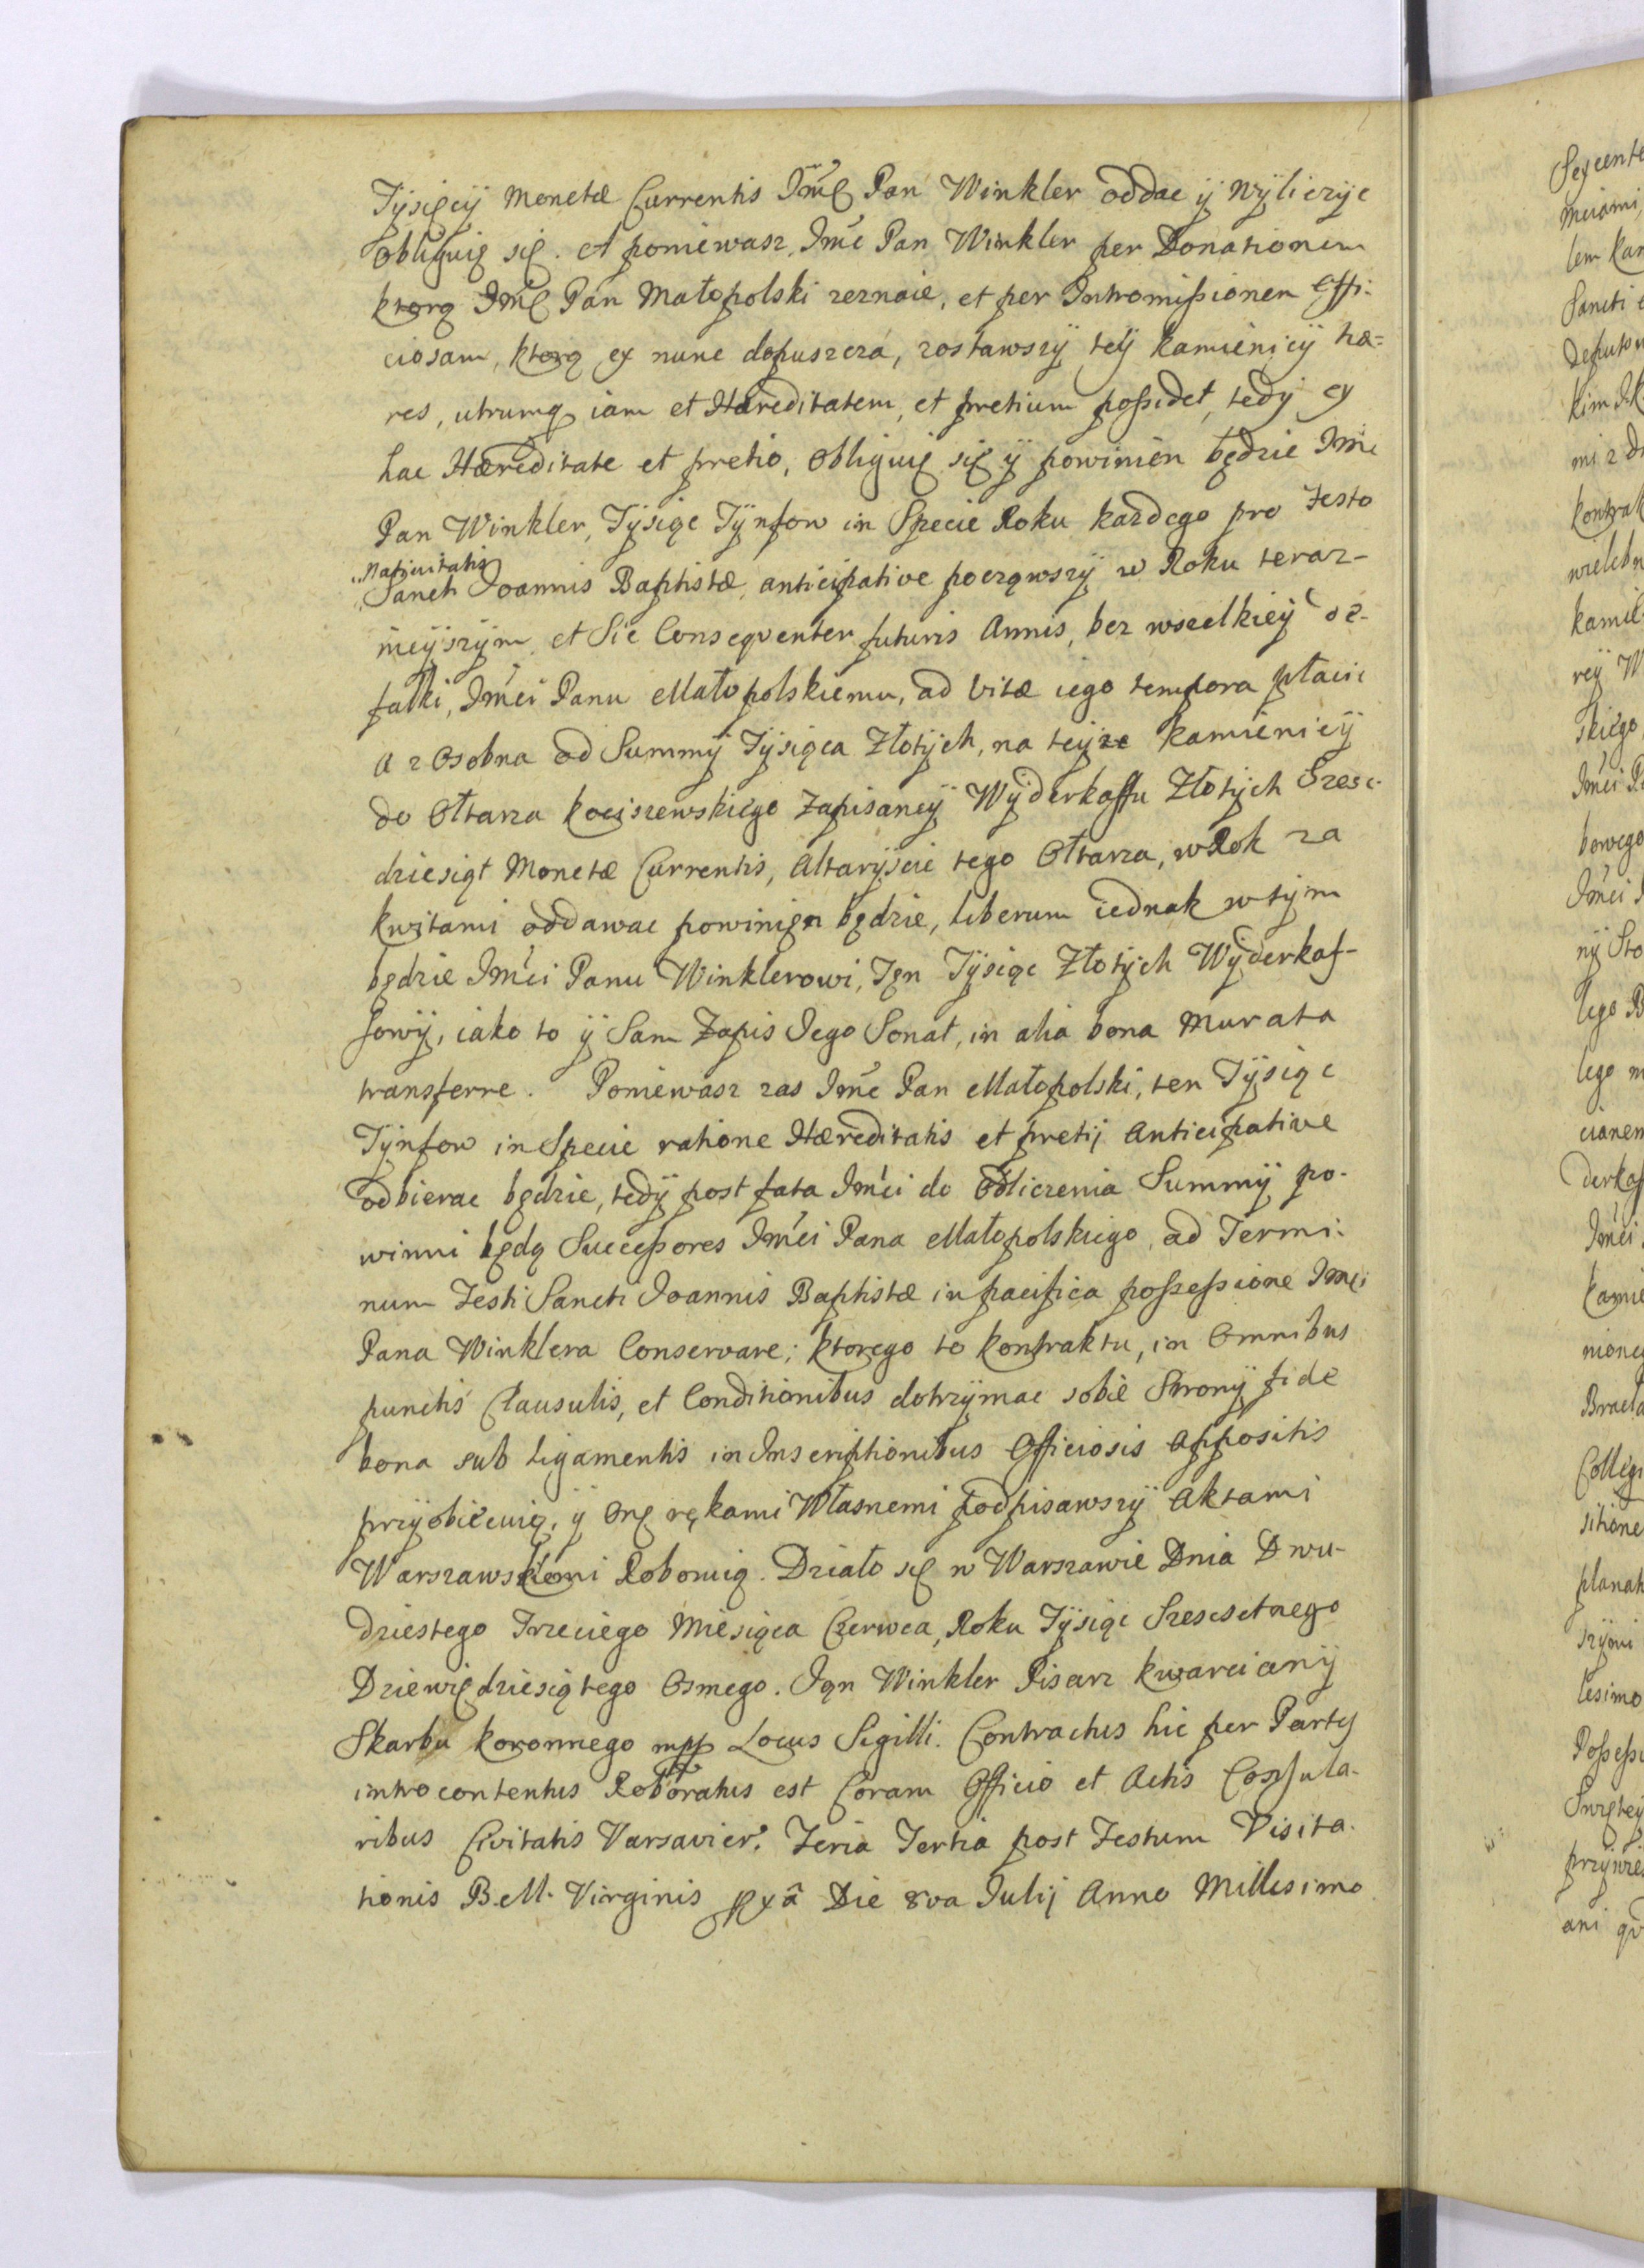 Tysięcy Monetæ Currentis Jmć Pan Winkler oddać ÿ wÿliczÿc
obliguię się. A ponieważ Jmć Pan Winkler per Donationem
ktorą Jmć Pan Małopolski zeznaie, et per Intromissionem Offi:
ciosam, ktorą ex nunc dopuszcza, zostawszÿ teÿ kamienicÿ hæ=
res, utrumq iam et Hæreditatem, et pretium possidet, tedÿ ex
hac Hæreditate et pretio, obliguię się ÿ powinien będzie Jmć
Pan Winkler, Tÿsiąc Tÿnfow in Specie Roku kazdego pro Festo
Nativitatis
Sancti Joannis Baptistæ, anticipative począwszÿ w Roku teraz-
nieÿszÿm, et Sic Consequenter futuris Annis, bez wszelkieÿ de-
falki, Jmći Panu Małopolskiemu, ad Vitæ iego tempora płacic
a z Osobna od Summÿ Tÿsiąca Złotÿch, na teÿze kamienicÿ
do Ołtarza kociszewskiego Zapisaneÿ Wÿderkaffu Złotÿch Szesc-
dziesiąt Monetæ Currentis, Altarÿscie tego Ołtarza, w Rok za
kwitami oddawac powinięn będzie, liberum iednak w tÿm
będzie Jmći Panu Winklerowi, Tęn Tÿsiąc Złotÿch Wÿderkaf-
fowÿ, iako to ÿ Sam Zapis Jego Sonat, in alia bona Murata
transferre. Poniewasz zas Jmć Pan Małopolski, ten Tÿsiąc
Tÿnfow in Specie ratione Hæreditatis et pretij Anticipative
odbierac będzie, tedÿ post fata Jmći do Odliczenia Summÿ po-
winni będą Successores Jmći Pana Małopolskiego, ad Termi:
num Festi Sancti Joannis Baptistæ in pacifica possessione Jmći
Pana Winklera Conservare; ktorego to kontraktu, in Omnibus
punctis Clausulis, et Conditionibus dotrzÿmac sobie Stronÿ fide
bona sub ligamentis in Inscriptionibus Officiosis Appositis
przÿobiecuią, ÿ one rękami Własnemi podpisawszÿ Aktami
Warszawskiemi Roboruią. Działo się w Warszawie Dnia Dwu-
dziestego Trzeciego Miesiąca Czerwca, Roku Tÿsiąc Szescsetnego
Dziewiędziesiątego Osmego. Jan Winkler Pisarz kwarcianÿ
Skarbu koronnego mpp Locus Sigilli. Contractus hic per Partes
introcontentus Roboratus est Coram Officio et Actis Consula-
ribus Civitatis Varsavien: Feria Tertia post Festum Visita-
tionis B. M. Virginis pxâ Die 8va Julij Anno Millesimo